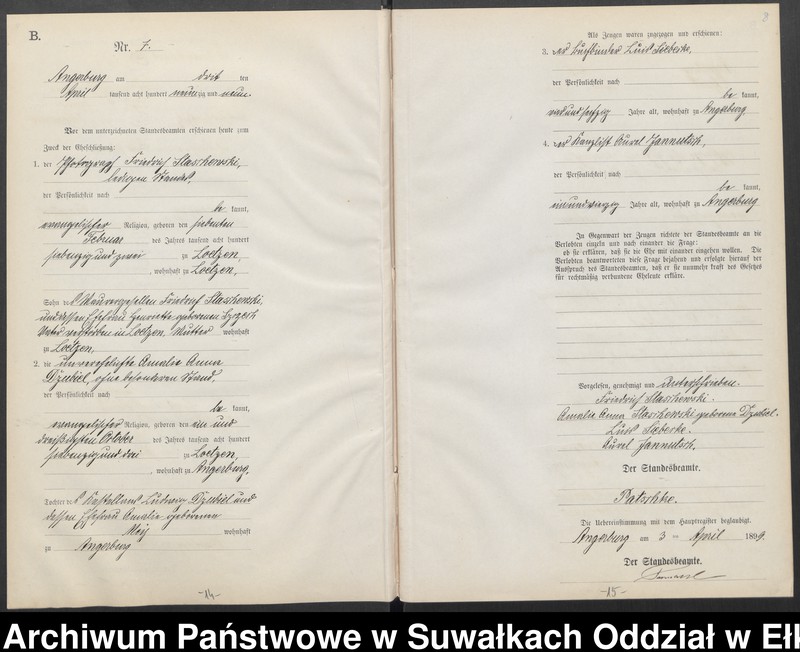 B.
Nr. 7.
Angerburg am drit ten
April tausend acht hundert neunzig und neun.
Vor dem unterzeichneten Standesbeamten erschienen heute zum
Zweck der Eheschließung:
1. der Photograph Friedrich Staschewski,
ledigen Standes,
der Persönlichkeit nach
be kannt,
evangelischer Religion, geboren den siebenten
Februar des Jahres tausend acht hundert
siebenzig und zwei zu Loetzen,
, wohnhaft zu Loetzen,
Sohn des Maurergesellen Friedrich Staschewski,
und dessen Ehefrau Henriette geborenen
Vater verstorben in Loetzen, Mutter wohnhaft
zu Loetzen,
2. die unverehelichte Amalie Anna
Dzubiel, ohne besonderen Stand,
der Persönlichkeit nach
be kannt,
evangelischer Religion, geboren den ein und
dreißigsten October des Jahres tausend acht hundert
siebenzig und drei zu Loetzen,
, wohnhaft zu Angerburg,
Tochter des Kastellans Ludwig Dzubiel und
dessen Ehefrau Amalie geborenen
wohnhaft
zu Angerburg
-14-
Als Zeugen waren zugezogen und erschienen:
3. der Buchbinder Louis
der Persönlichkeit nach
be kannt,
Jahre alt, wohnhaft zu Angerburg
4. der Kanzlist Aurel Jannutsch,
der Persönlichkeit nach
be kannt,
einundvierzig Jahre alt, wohnhaft zu Angerburg
In Gegenwart der Zeugen richtete der Standesbeamte an die
Verlobten einzeln und nach einander die Frage:
ob sie erklären, daß sie die Ehe mit einander eingehen wollen. Die
Verlobten beantworteten diese Frage bejahend und erfolgte hierauf der
Ausspruch des Standesbeamten, daß er sie nunmehr kraft des Gesetzes
für rechtmäßig verbundene Eheleute erkläre.
Vorgelesen, genehmigt und unterschrieben.
Friedrich Staschewski.
Amalie Anna Staschewski geborene Dzubiel.
Louis
Aurel Jannutsch.
Der Standesbeamte.
Patschke.
Die Uebereinstimmung mit dem Hauptregister beglaubigt.
Angerburg am 3 ten April 1899.
Der Standesbeamte.
-15-
Archiwum Państwowe w Suwałkach Oddział w Eł